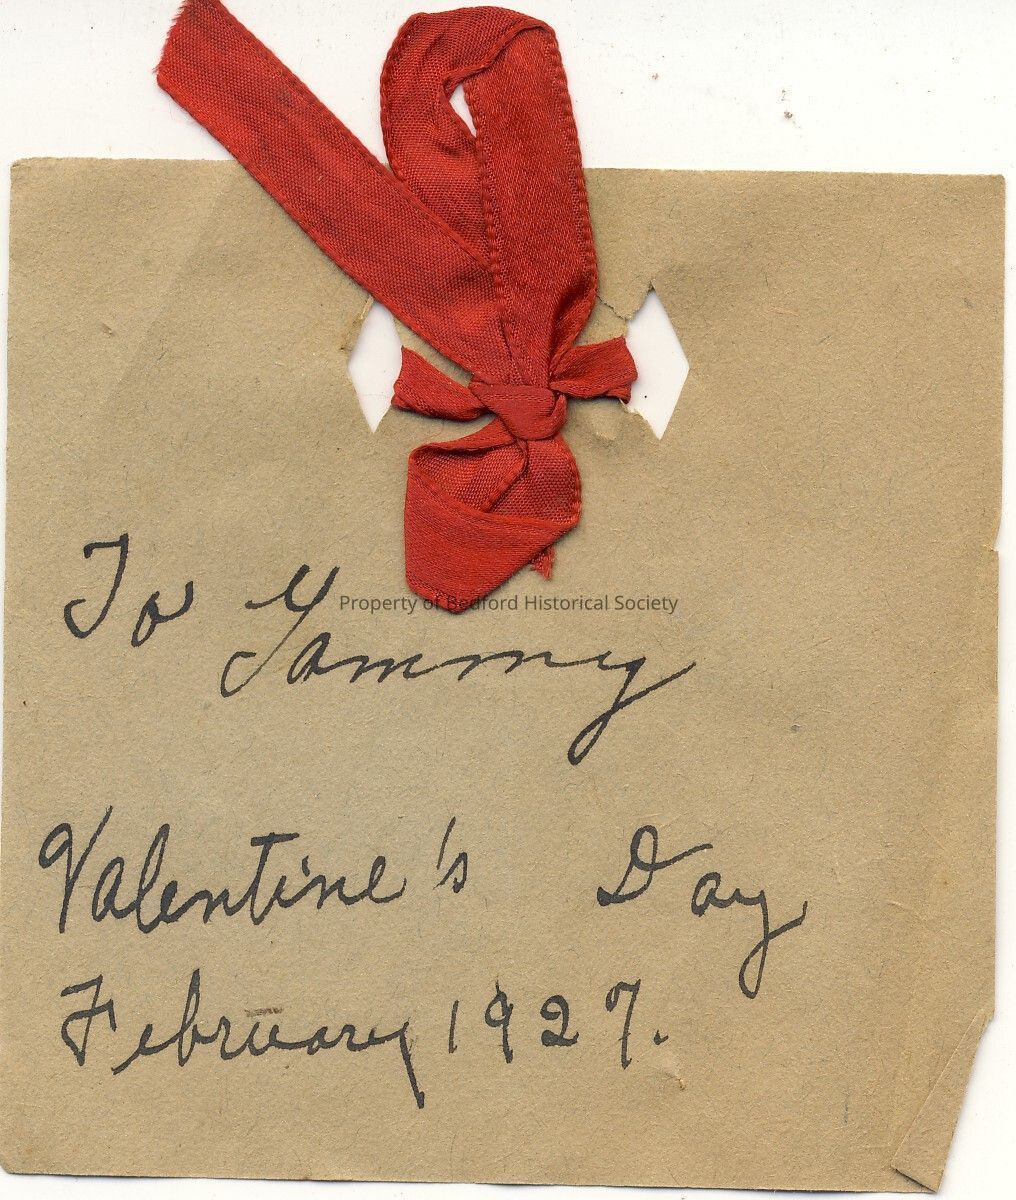 To
Property of Bedford Historical Society
Valentine's Day
February 1927.